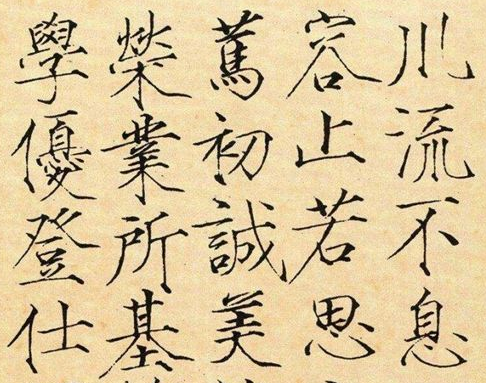 川流不息
容止若思
篤初誠美
榮業所基
學優登仕